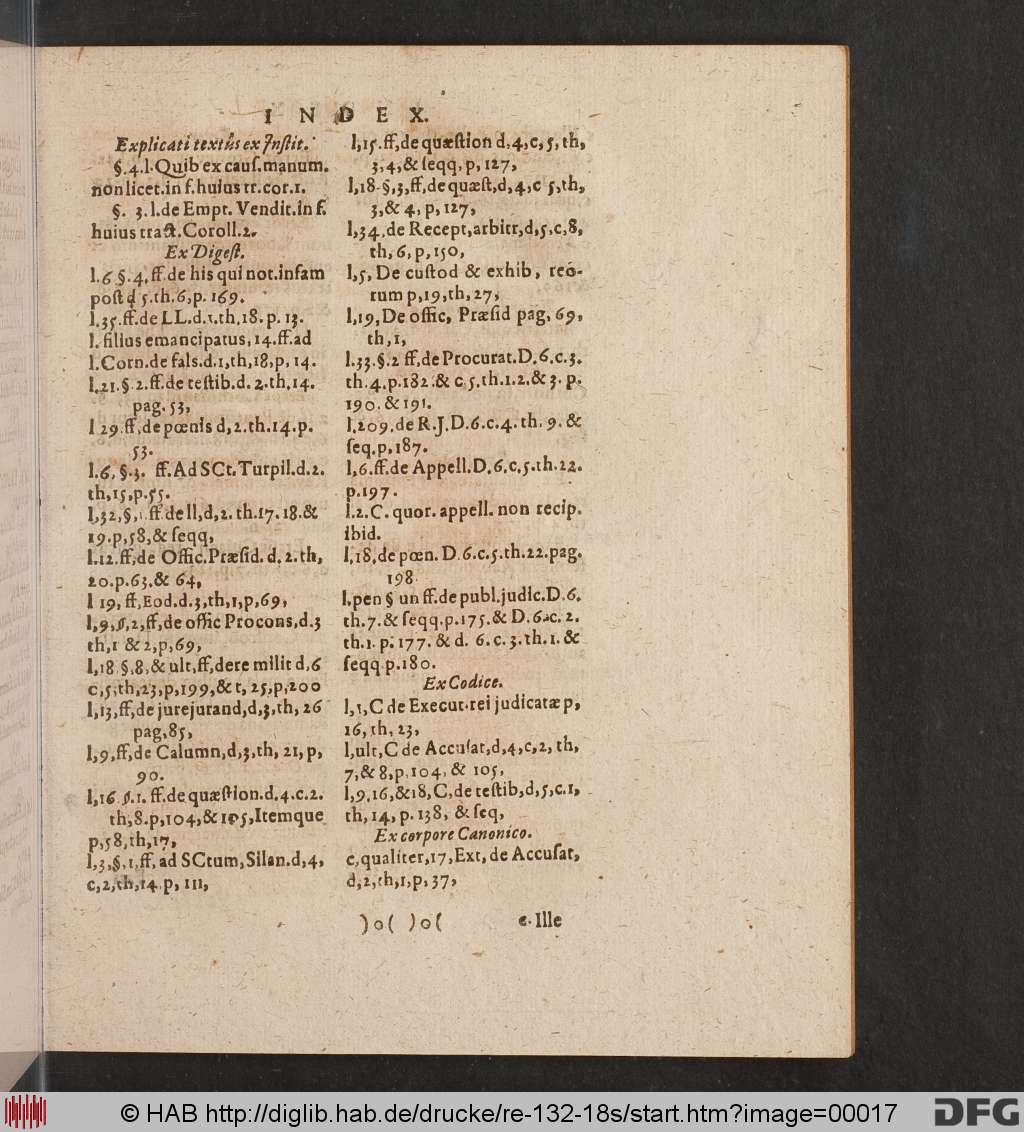 I N D E X.
Explicati textûs ex Instit.
§.4.l.Quib ex caus.manum.
non licet.in f.huius tr.cor.1.
§. 3.l.de Empt. Vendit.in f.
huius tract.Coroll.2.
Ex Digest.
l.6 §.4.ff.de his qui not.infam
post d 5.th.6,p. 169.
l.35.ff.de LL.d.1.th,18.p. 13.
l. filius emancipatus, 14.ff.ad
l.Corn.de fals.d.1,th,18,p, 14.
l.21.§.2.ff.de testib.d. 2.th,14.
pag. 53,
l 29.ff,de pœnis d,2.th.14.p.
53.
l.6, §.3. ff.Ad SCt.Turpil.d.2.
th,15,p.55.
l,32,§,1.ff.de ll,d,2. th.17. 18.&
19.p,58,& seqq,
l.12.ff,de Offic.Præsid. d. 2.th,
20.p.63.& 64,
l 19, ff,Eod.d.3,th,1,p,69,
l,9,§,2,ff,de offic Procons,d.3
th,1 & 2,p,69,
l,18 §.8,& ult,ff,dere milit d,6
c,5,th,23,p,199,& t, 25,p,200
l,13,ff,de jurejurand,d,3,th, 26
pag,85,
l,9,ff,de Calumn,d,3,th, 21, p,
90.
l,16 §.1. ff.de quæstion.d.4.c.2.
th,8.p,104,& 105,Itemque
p,58,th,17,
l,3,§,1,ff, ad SCtum,Silan.d,4,
c,2,th,14.p, 111,
l,15.ff,de quæstion d,4,c,5,th,
3,4,& seqq, p, 127,
l,18.§,3,ff,de quæst,d,4,c 5,th,
3,& 4, p,127,
l,34,de Recept,arbitr,d,5,c,8,
th, 6, p,150,
l,5, De custod & exhib, reo-
rum p,19,th, 27,
l,19,De offic, Præsid pag, 69,
th,1,
l.33.§.2 ff,de Procurat.D.6.c.3.
th.4.p.182.& c 5.th.1.2.& 3. p.
190. & 191.
l.209.de R.J.D.6.c.4. th. 9. &
seq.p,187.
l,6.ff.de Appell.D.6.c.5.th.22.
p.197.
l.2.C. quor. appell. non recip.
ibid.
l,18,de pœn. D.6.c.5.th.22.pag.
198.
l.pen § un ff.de publ.judic.D.6.
th.7.& seqq.p.175.& D.6.c. 2.
th.1. p. 177. & d. 6. c. 3.th.1. &
seqq.p.180.
Ex Codice.
l,1,C de Execut.rei judicatæ p,
16,th, 23,
l,ult,C de Accusat,d,4,c,2, th,
7,& 8,p,104, & 105,
l,9.16,&18,C,de testib,d,5,c.1,
th, 14, p. 138, & seq,
Ex corpore Canonico.
c,qualiter,17,Ext, de Accusat,
d,2,th,1,p,37,
)o( )o(
c. Ille
© HAB http://diglib.hab.de/drucke/re-132-18s/start.htm?image=00017
DFG